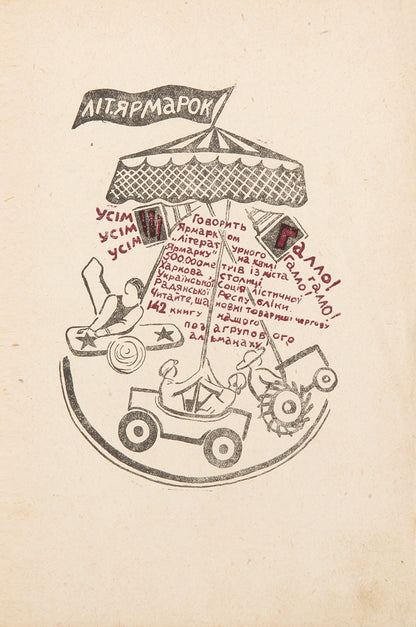 ЛІТЯРМАРОК
УСІМ
УСІМ
УСІМ
Галло!
Галло!
галло!
Говорить
Ярмарком
„Літературного
Ярмарку" на хвилі
500.000 метрів із міста
Харкова столиці
Української Соціялістичної
Радянської Республіки.
Читайте, шановні товариші чергову
142 книгу нашого
позагрупового
альманаху.